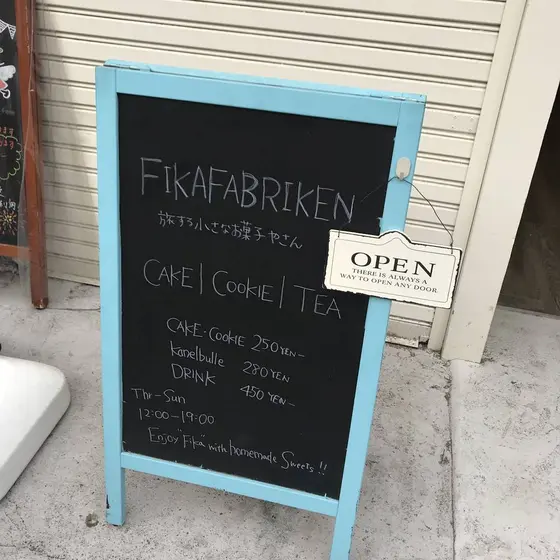 FIKAFABRIKEN
旅する小さなお菓子やさん
CAKE | COOKIE | TEA
CAKE・COOKIE 250YEN~
Kanelbulle 280YEN
DRINK 450YEN~
Thr-Sun
12:00-19:00
Enjoy "Fika" with homemade Sweets!!
OPEN
THERE IS ALWAYS A
WAY TO OPEN ANY DOOR